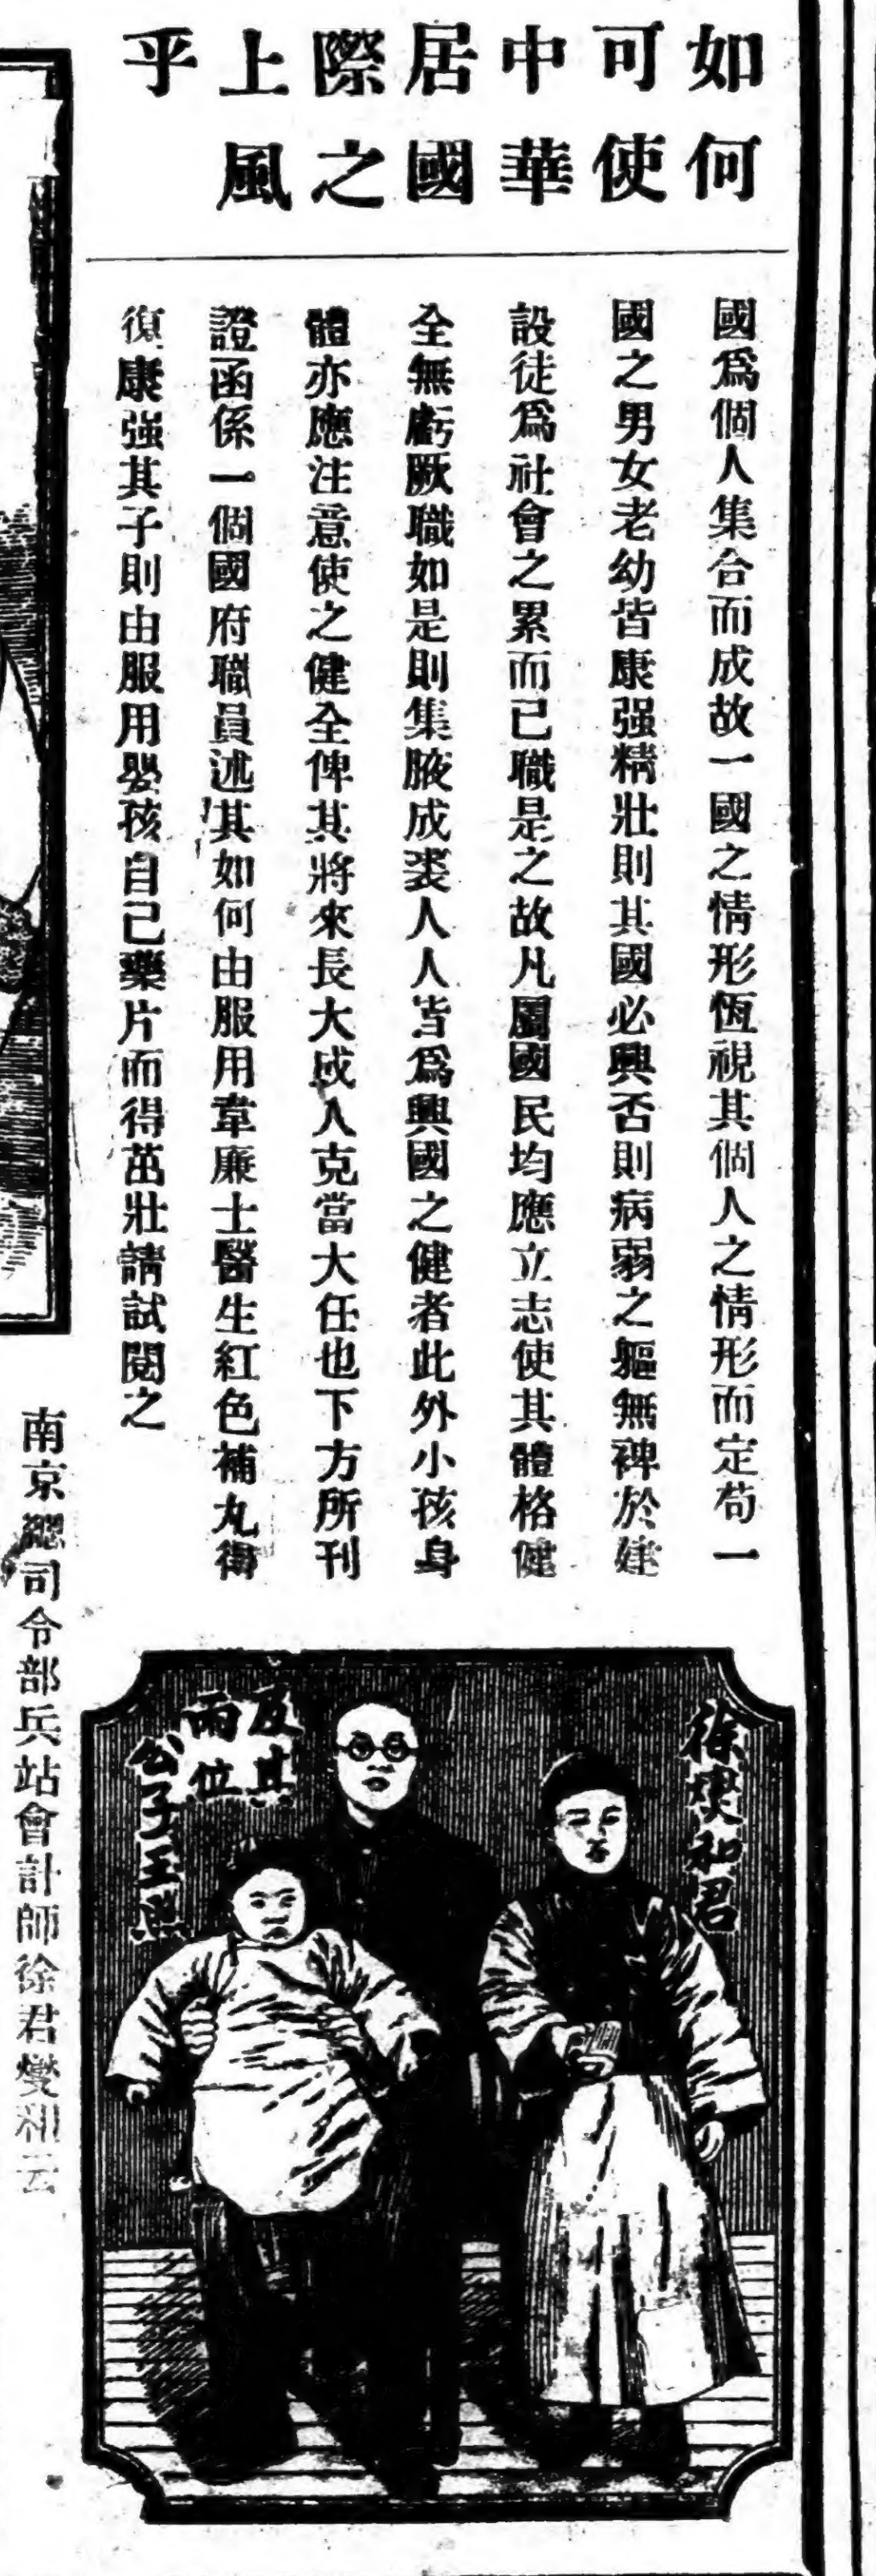 如何
可使
中華
居國
際之
上風
乎
國爲個人集合而成故一國之情形恆視其個人之情形而定苟一
國之男女老幼皆康强精壯則其國必興否則病弱之軀無裨於建
設徒爲社會之累而已職是之故凡屬國民均應立志使其體格健
全無虧厥職如是則集腋成裘人人皆爲興國之健者此外小孩身
體亦應注意使之健全俾其將來長大成人克當大任也下方所刊
證函係一個國府職員述其如何由服用韋廉士醫生紅色補丸而
復康强其子則由服用嬰孩自己藥片而得茁壯請試閱之
徐燮和君
及其
兩位
公子玉
南京總司令部兵站會計師徐君燮和云